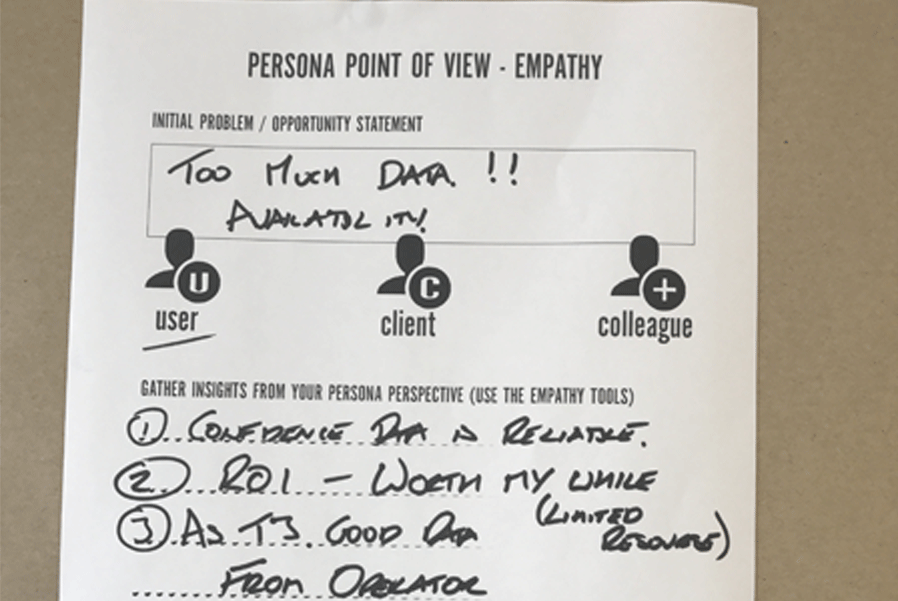 PERSONA POINT OF VIEW - EMPATHY
INITIAL PROBLEM / OPPORTUNITY STATEMENT
Too Much DATA !!
U
C
+
user
client
colleague
GATHER INSIGHTS FROM YOUR PERSONA PERSPECTIVE (USE THE EMPATHY TOOLS)
1 CONFIDENCE DATA IS RELIABLE.
2 ROI - WORTH MY WHILE
(LIMITED
RESOURCE)
3 GOOD DATA
FROM OPERATOR